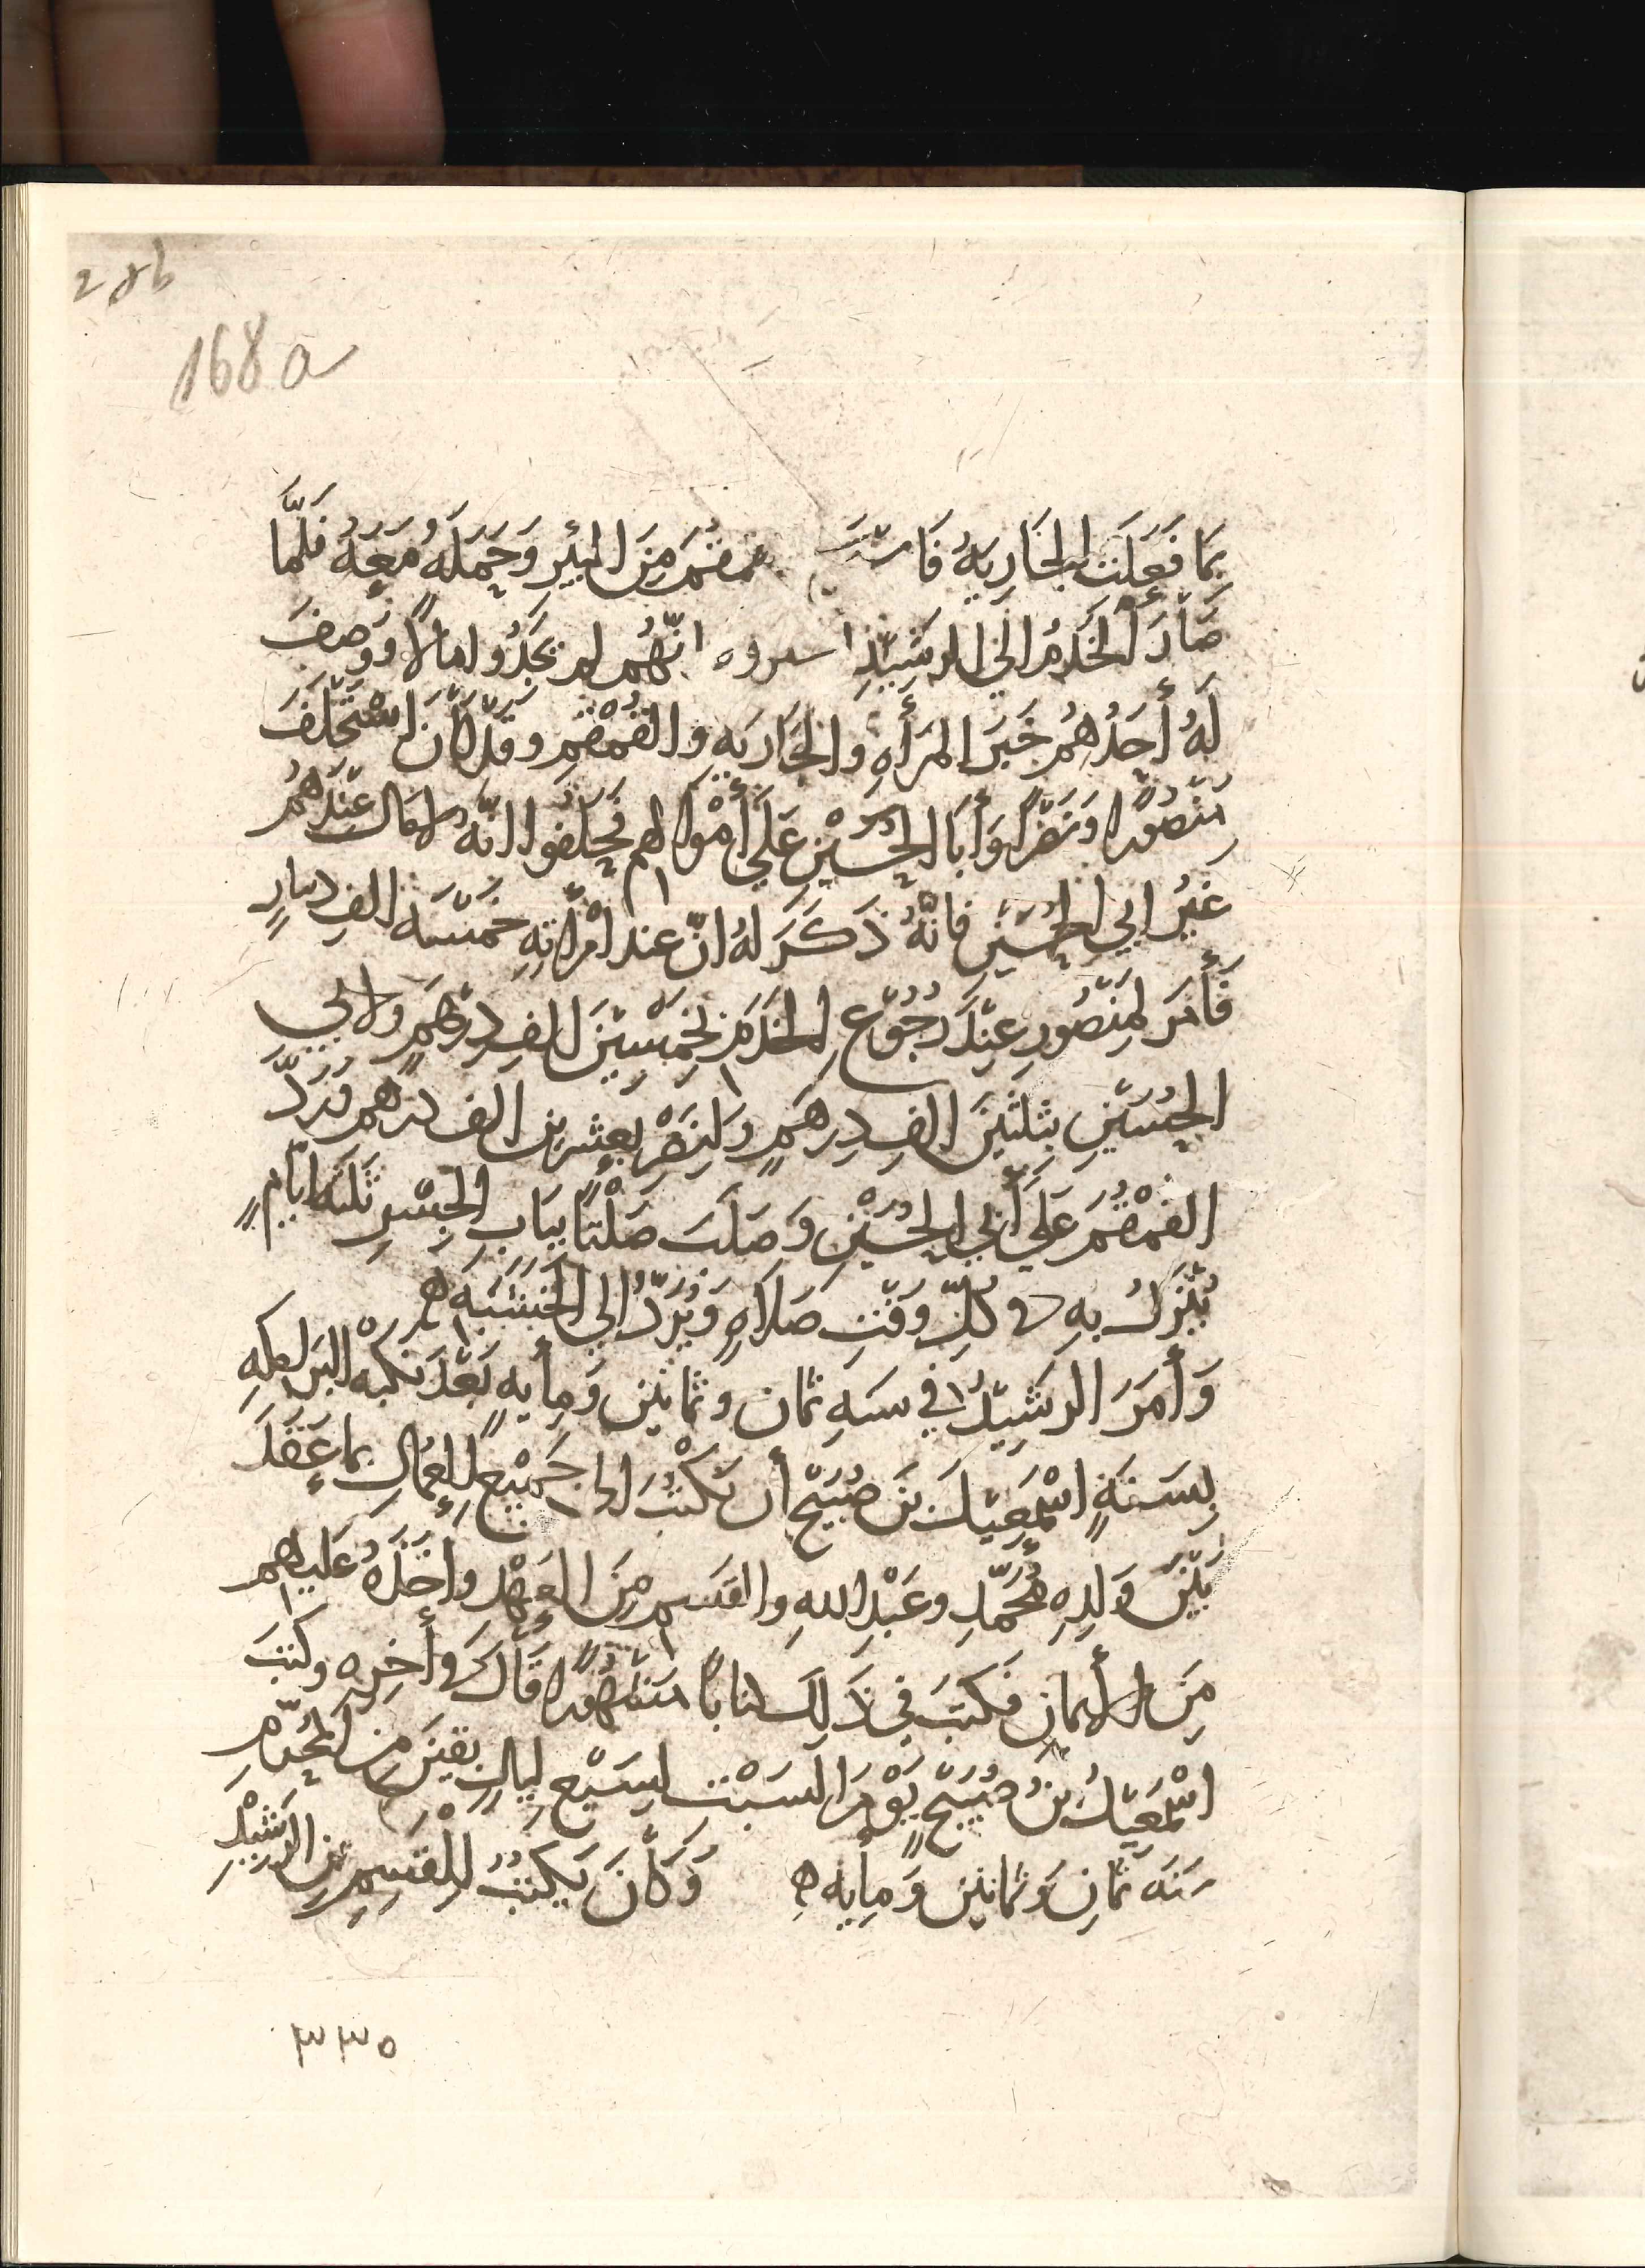 28b
168a
بِمَا فَعَلَت الجَارِيَةُ فَاستَ قمقُمَ مِنَ البِئرِ وَحَمَلَهُ مَعَهُ فَلَمَّا
صَارَ الخَدَمُ اِلَى الرشِيْدِ انّهُم لم يَجِدُوا مالاً وَوَصَفَ
لَهُ أَحَدُهُم خَبَرَ المَرأَهِ والجَاريَهِ والقُمْقُمِ وقَدْ كَانَ اسْتَحْلَفَ
مَنْصُوْرا وَنَصْراً وَأَبَا الحُسَيْنِ عَلَى أَمْوالهم فَحَلَفُوا انّهُ لا مَال عِنْدَهُم
غيْرُ ابي الحُسَيْنِ فانّهُ ذَكَرَ لهُ انّ عند امْرأتِهِ خمْسَه الف دينارٍ
فَأَمَر لِمَنْصُورٍ عِنْدَ رُجُوْعِ الخَدَمِ بِخَمْسِيْنَ الفِ دِرْهَمٍ ولابي
الحُسَيْنِ بِثَلثينَ الفِ دِرهَمٍ ولِنَصْرٍ بعِشرين الف درهم وَرَدَّ
القُمْقُمَ عَلَى أَبي الحُسَيْنِ وَصَلَبَ صَلْتًا بِبَابِ الجِسْرِ ثَلثَهَ ايّامٍ
يُنْزَلُ بِهِ في كُلِّ وَقْتِ صَلاَهٍ وَيُرَدُّ اِلي الخَشَبَهِ ه
وَأَمَرَ الرشِيْدُ في سَنهِ ثمان وثمانين وَمِأيهٍ بَعْدَ نكبَهْ البَرامكهِ
بِسَنَةٍ اسْمَعِيْلَ بنَ صُبَيْحٍ أَن يَكْتُبَ اِلى جَمِيْعِ العُمّالِ بما عَقَدَ
بَيْنَ وَلَدِهِ مُحَمَّدٍ وعَبْدِ اللهِ والقَسمِ مِنَ العَهْدِ وأَخَذَهُ عَلَيهم
مِنَ الأَيمانِ فَكَتَبَ في ذَلِكَ كتاباً مَشْهُوْرا قَالَ في أخِرِه وكَتَبَ
اسْمَعِيْلُ بنُ صُبَيْحٍ يَوْمَ السَبْتِ لسَبْعِ لَيالٍ بَقِيْنَ مِنَ المُحَرَّمِ
سَنَه ثمَانٍ وَثمانين وَمِأيهٍ ه وَكَانَ يَكْتُبُ للقَسِمِ بنِ الرَشِيْدِ
٣٣٥